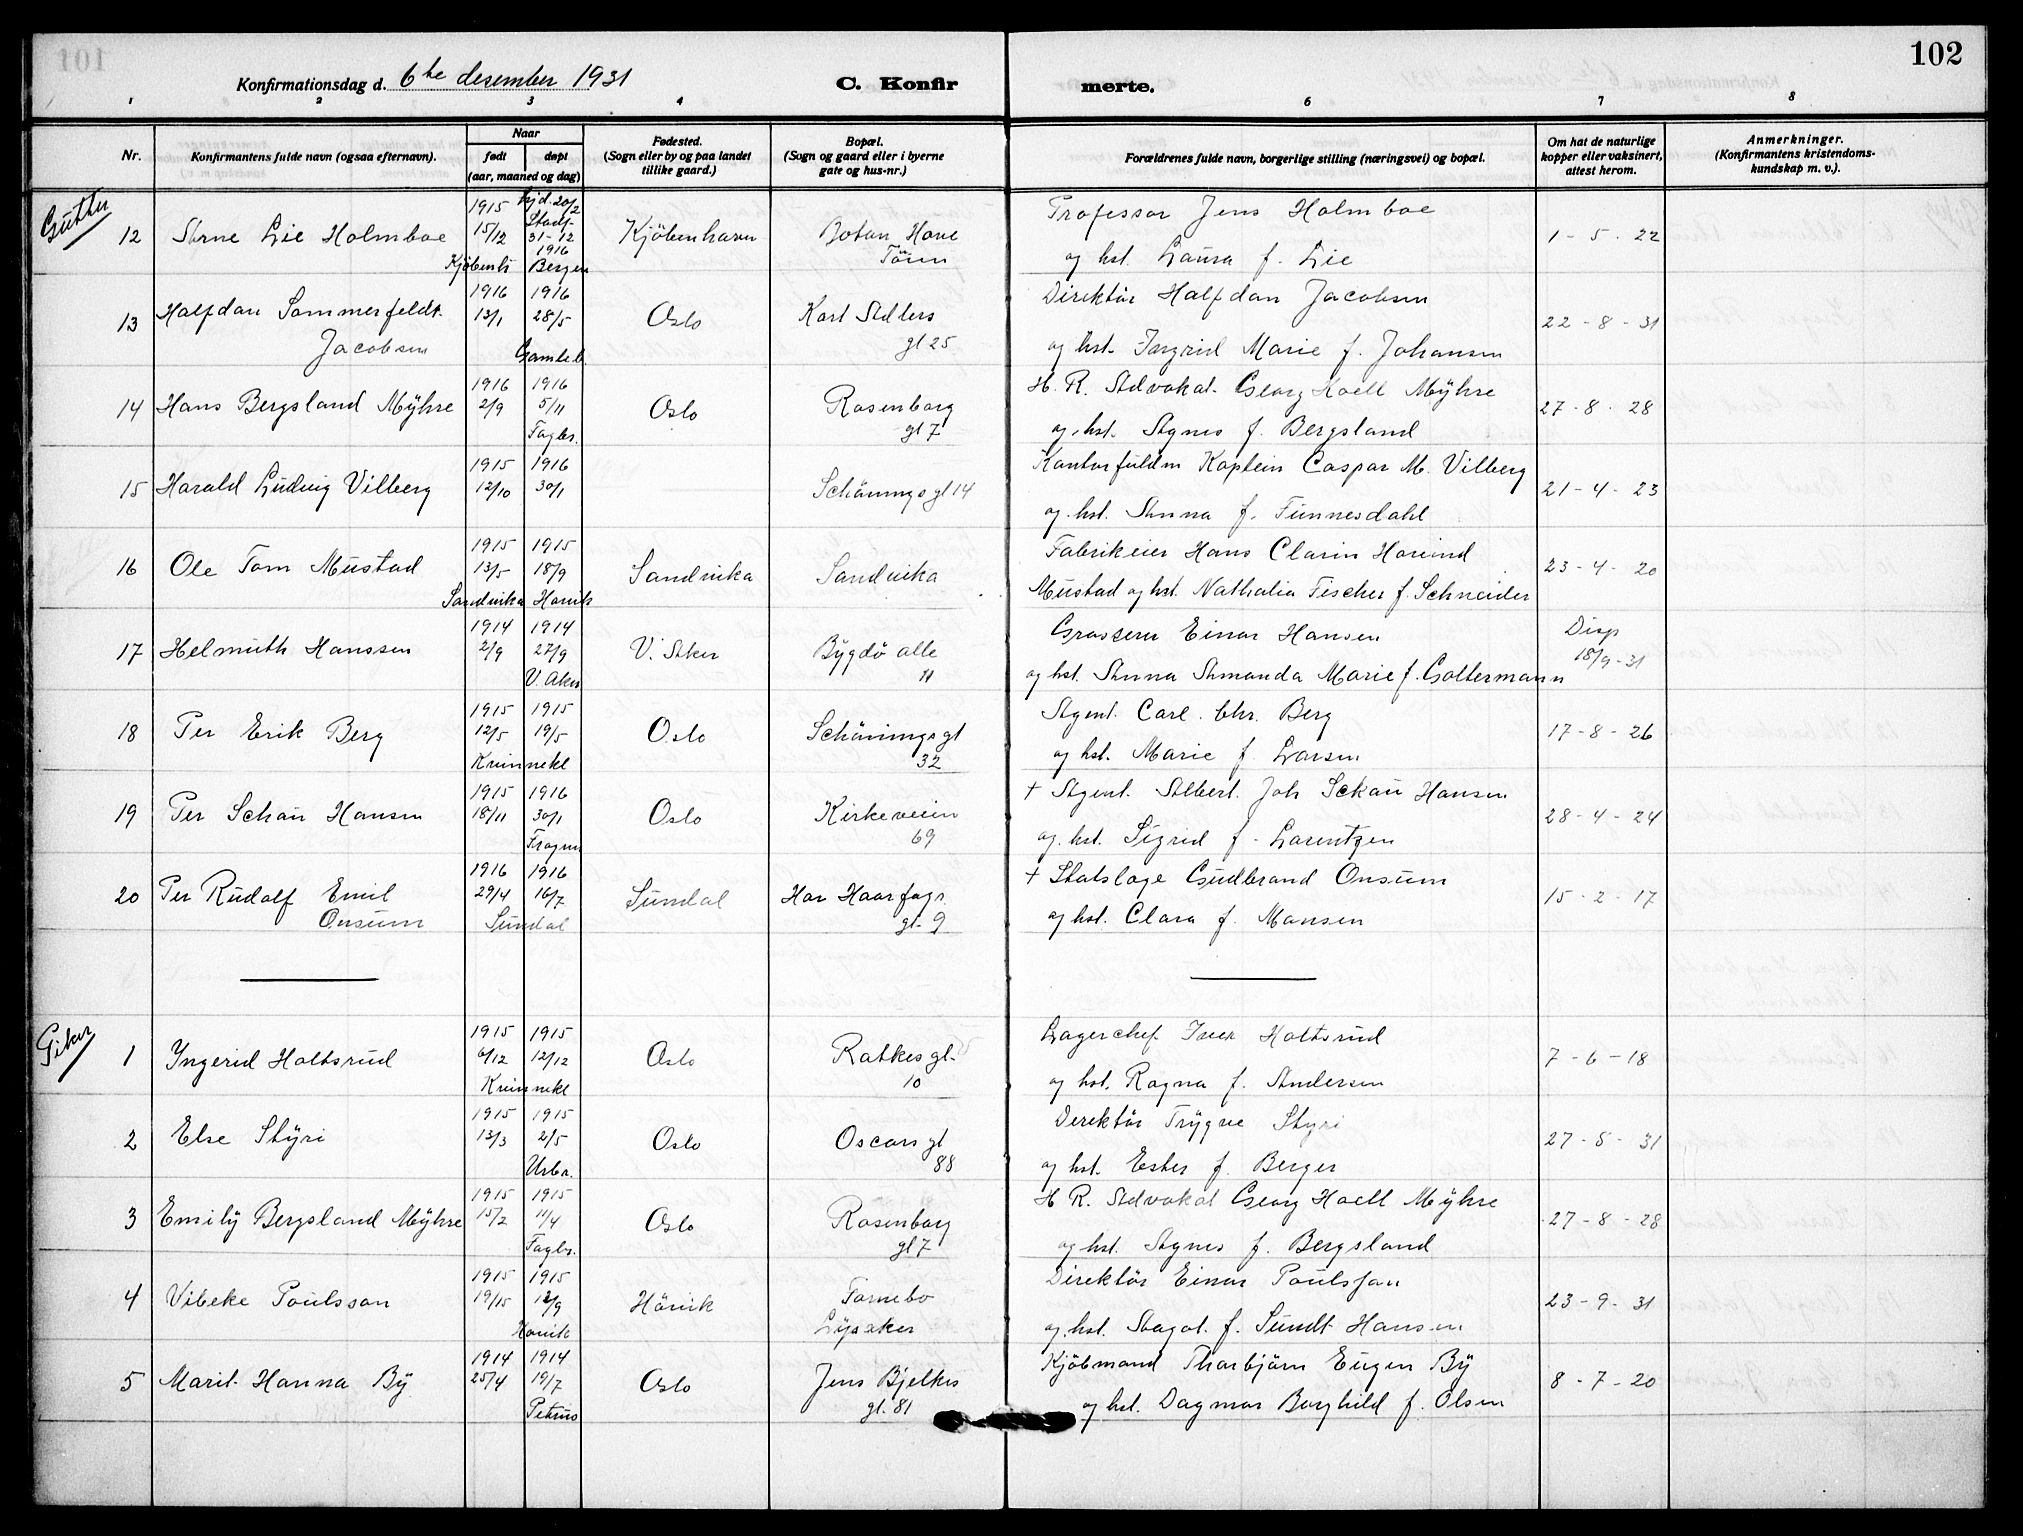 101
102
Konfirmationsdag d. 6te desember 1931
C. Konfirmerte.
1 2 3 4 6 7 8
Nr.
Konfirmantens fulde navn (ogsaa efternavn).
Naar
født døpt
(aar, maaned og dag)
Fødested.
(Sogn eller by og paa landet
tillike gaard.)
Bopæl.
(Sogn og gaard eller i byerne
gate og hus-nr.)
Forældrenes fulde navn, borgerlige stilling (næringsvei) og bopæl.
Om hat de naturlige
kopper eller vaksinert,
attest herom.
Anmerkninger.
(Konfirmantens kristendoms-
kundskap m. v.).
Gutter
12 Arne Lie Holmboe 1915 15/12 Kjøbenh. hjd. 20/2 Stadf. 31-12 1916 Bergen Kjöbenhavn Botan Have Töien Professor Jens Holmboe
og hst. Laura f. Lie 1-5-22
13 Halfdan Sommerfeldt 1916 13/1 1916 28/5 Oslo Karl Adlers Direktör Halfdan Jacobsen 22-8-31
Jacobsen Gamleb. gt 25 og hst. Ingrid Marie f. Johansen
14 Hans Bergsland Mÿhre 1916 2/9 1916 5/11 Fagb. Oslo Rosenborg gt 7 H. R. Advokat Georg Hoell Mÿhre 27-8-28
og hst. Agnes f. Bergsland
15 Harald Ludvig Vilberg 1915 12/10 1916 30/1 Schönings gt 14 Kontorfuldm Kaptein Caspar M. Vilberg 21-4-23
og hst. Anna f. Funnesdahl
16 Ole Tom Mustad 1915 13/5 Sandvika 1915 18/9 Hövik Sandvika Sandvika Fabrikeier Hans Clarin Hovind 23-4-20
Mustad og hst. Nathalia Fischer f. Schneider
17 Helmuth Hanssen 1914 2/9 1914 27/9 V. Aker V. Aker Bÿgdö alle 11 Grosserer Einar Hansen Disp 18/9-31
og hst. Anna Amanda Marie f. Goltermann
18 Per Erik Berg 1915 12/5 1915 19/5 Kvinnekl Oslo Schönings gt 32 Agent Carl. Chr. Berg 17-8-26
og hst. Marie f. Larsen
19 Per Schau Hansen 1915 18/11 1916 30/1 Frogner Oslo Kirkeveien 69 + Agent. Albert. Joh Schau Hansen 28-4-24
og hst. Sigrid f. Larentzen
20 Per Rudolf Emil 1916 29/4 1916 16/7 Sundal Har Haarfags + Statslæge Gudbrand Onsum 15-2-17
Onsum Sundal gt. 9 og hst. Clara f. Mansen
Piker
1 Yngerid Holtsrud 1915 6/12 1915 12/12 Kvinnekl Oslo Ratkes gt. 10 Lagerchef Iver Holtsrud 7-6-18
og hst. Ragna f. Andersen
2 Else Stÿri 1915 13/3 1915 2/5 Urbo. Oslo Oscars gt 88 Direktör Trÿgve Styri 27-8-31
og hst. Ester f. Berger
3 Emilÿ Bergsland Mÿhre 1915 15/2 1915 11/4 Fagb. Oslo Rosenborg gt 7 H R. Advokat Georg Hoell Mÿhre 27-8-28
og hst. Agnes f. Bergsland
4 Vibeke Poulsson 1915 1915 12/9 Hövik Hövik Fornebo Lÿsaker Direktör Einar Poulsson 23-9-31
og hst. Aagot f. Sundt Hansen
5 Marit Hanna Bÿ 1914 25/4 1914 19/7 Petrus Oslo Jens Bjelkes gt. 81 Kjöbmand Thorbjörn Eugen Bÿ 8-7-20
og hst. Dagmar Borghild f. Olsen